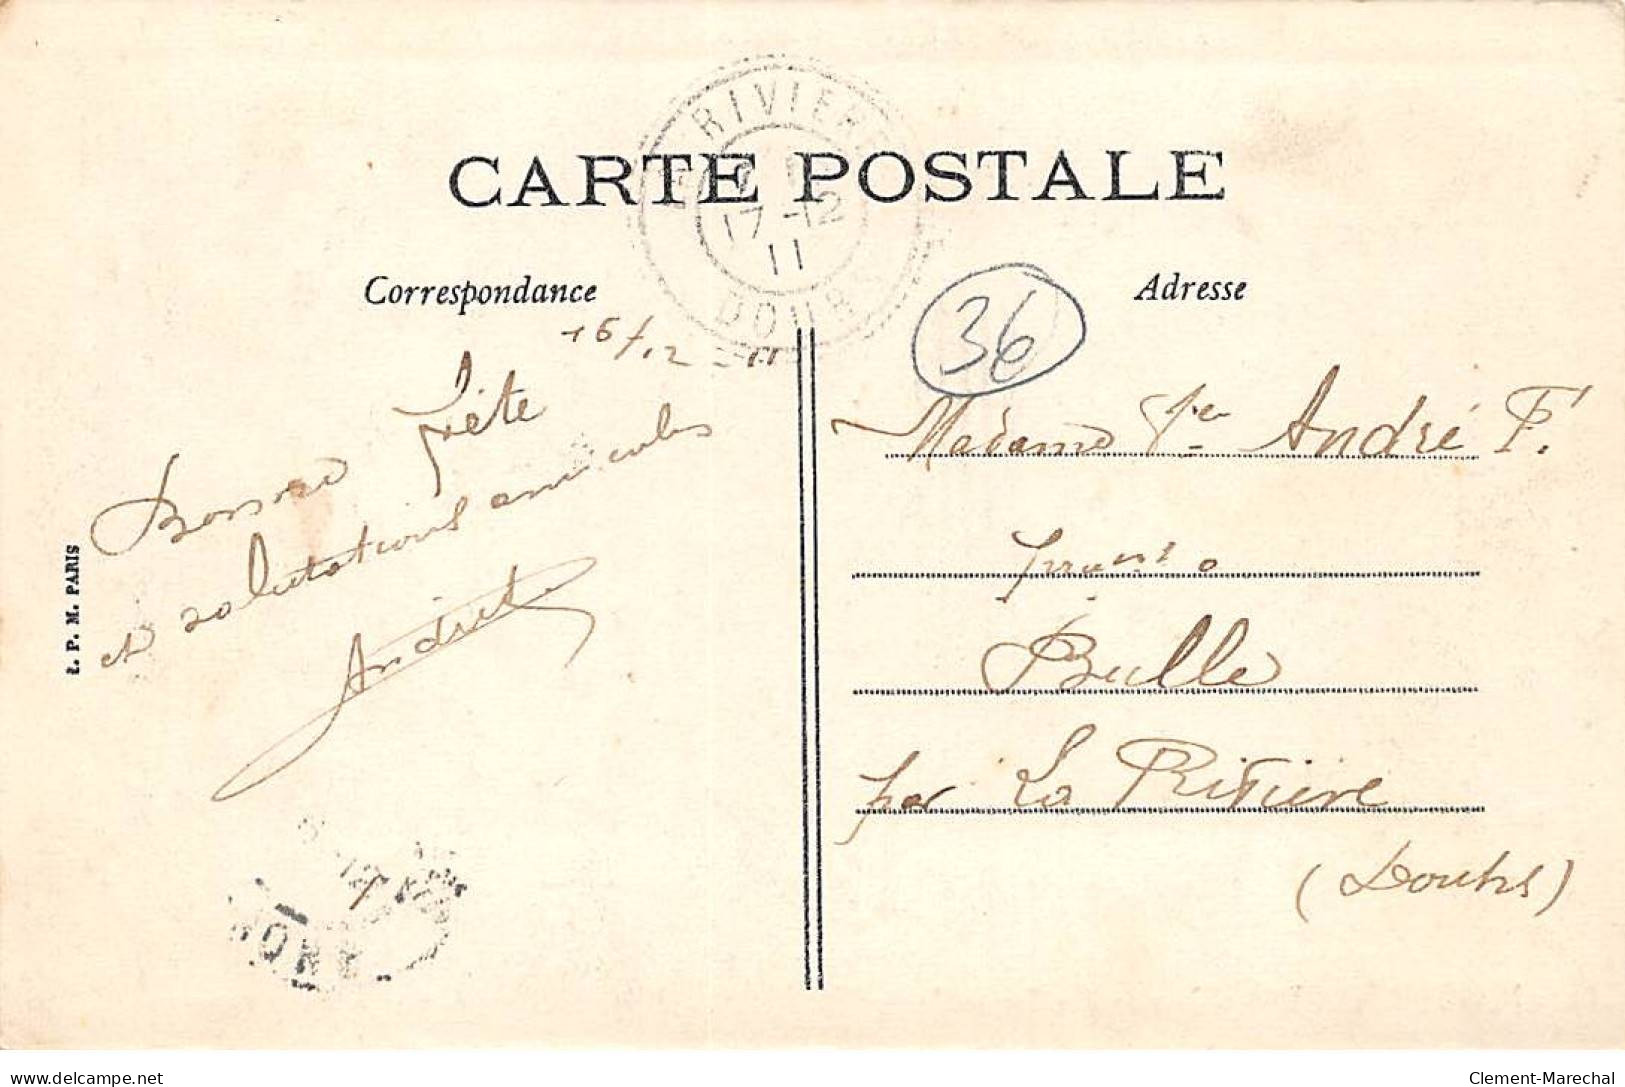 RIVIERE
17-12
11
DOUBS
CARTE POSTALE
Correspondance
Adresse
36
16/12-11
Bonne Fête
et salutations amicales
Andret
Madame Vve André F.
Bulle
par La Rivière
(Doubs)
E. P. M. PARIS
delcampe.net
Clement-Marechal